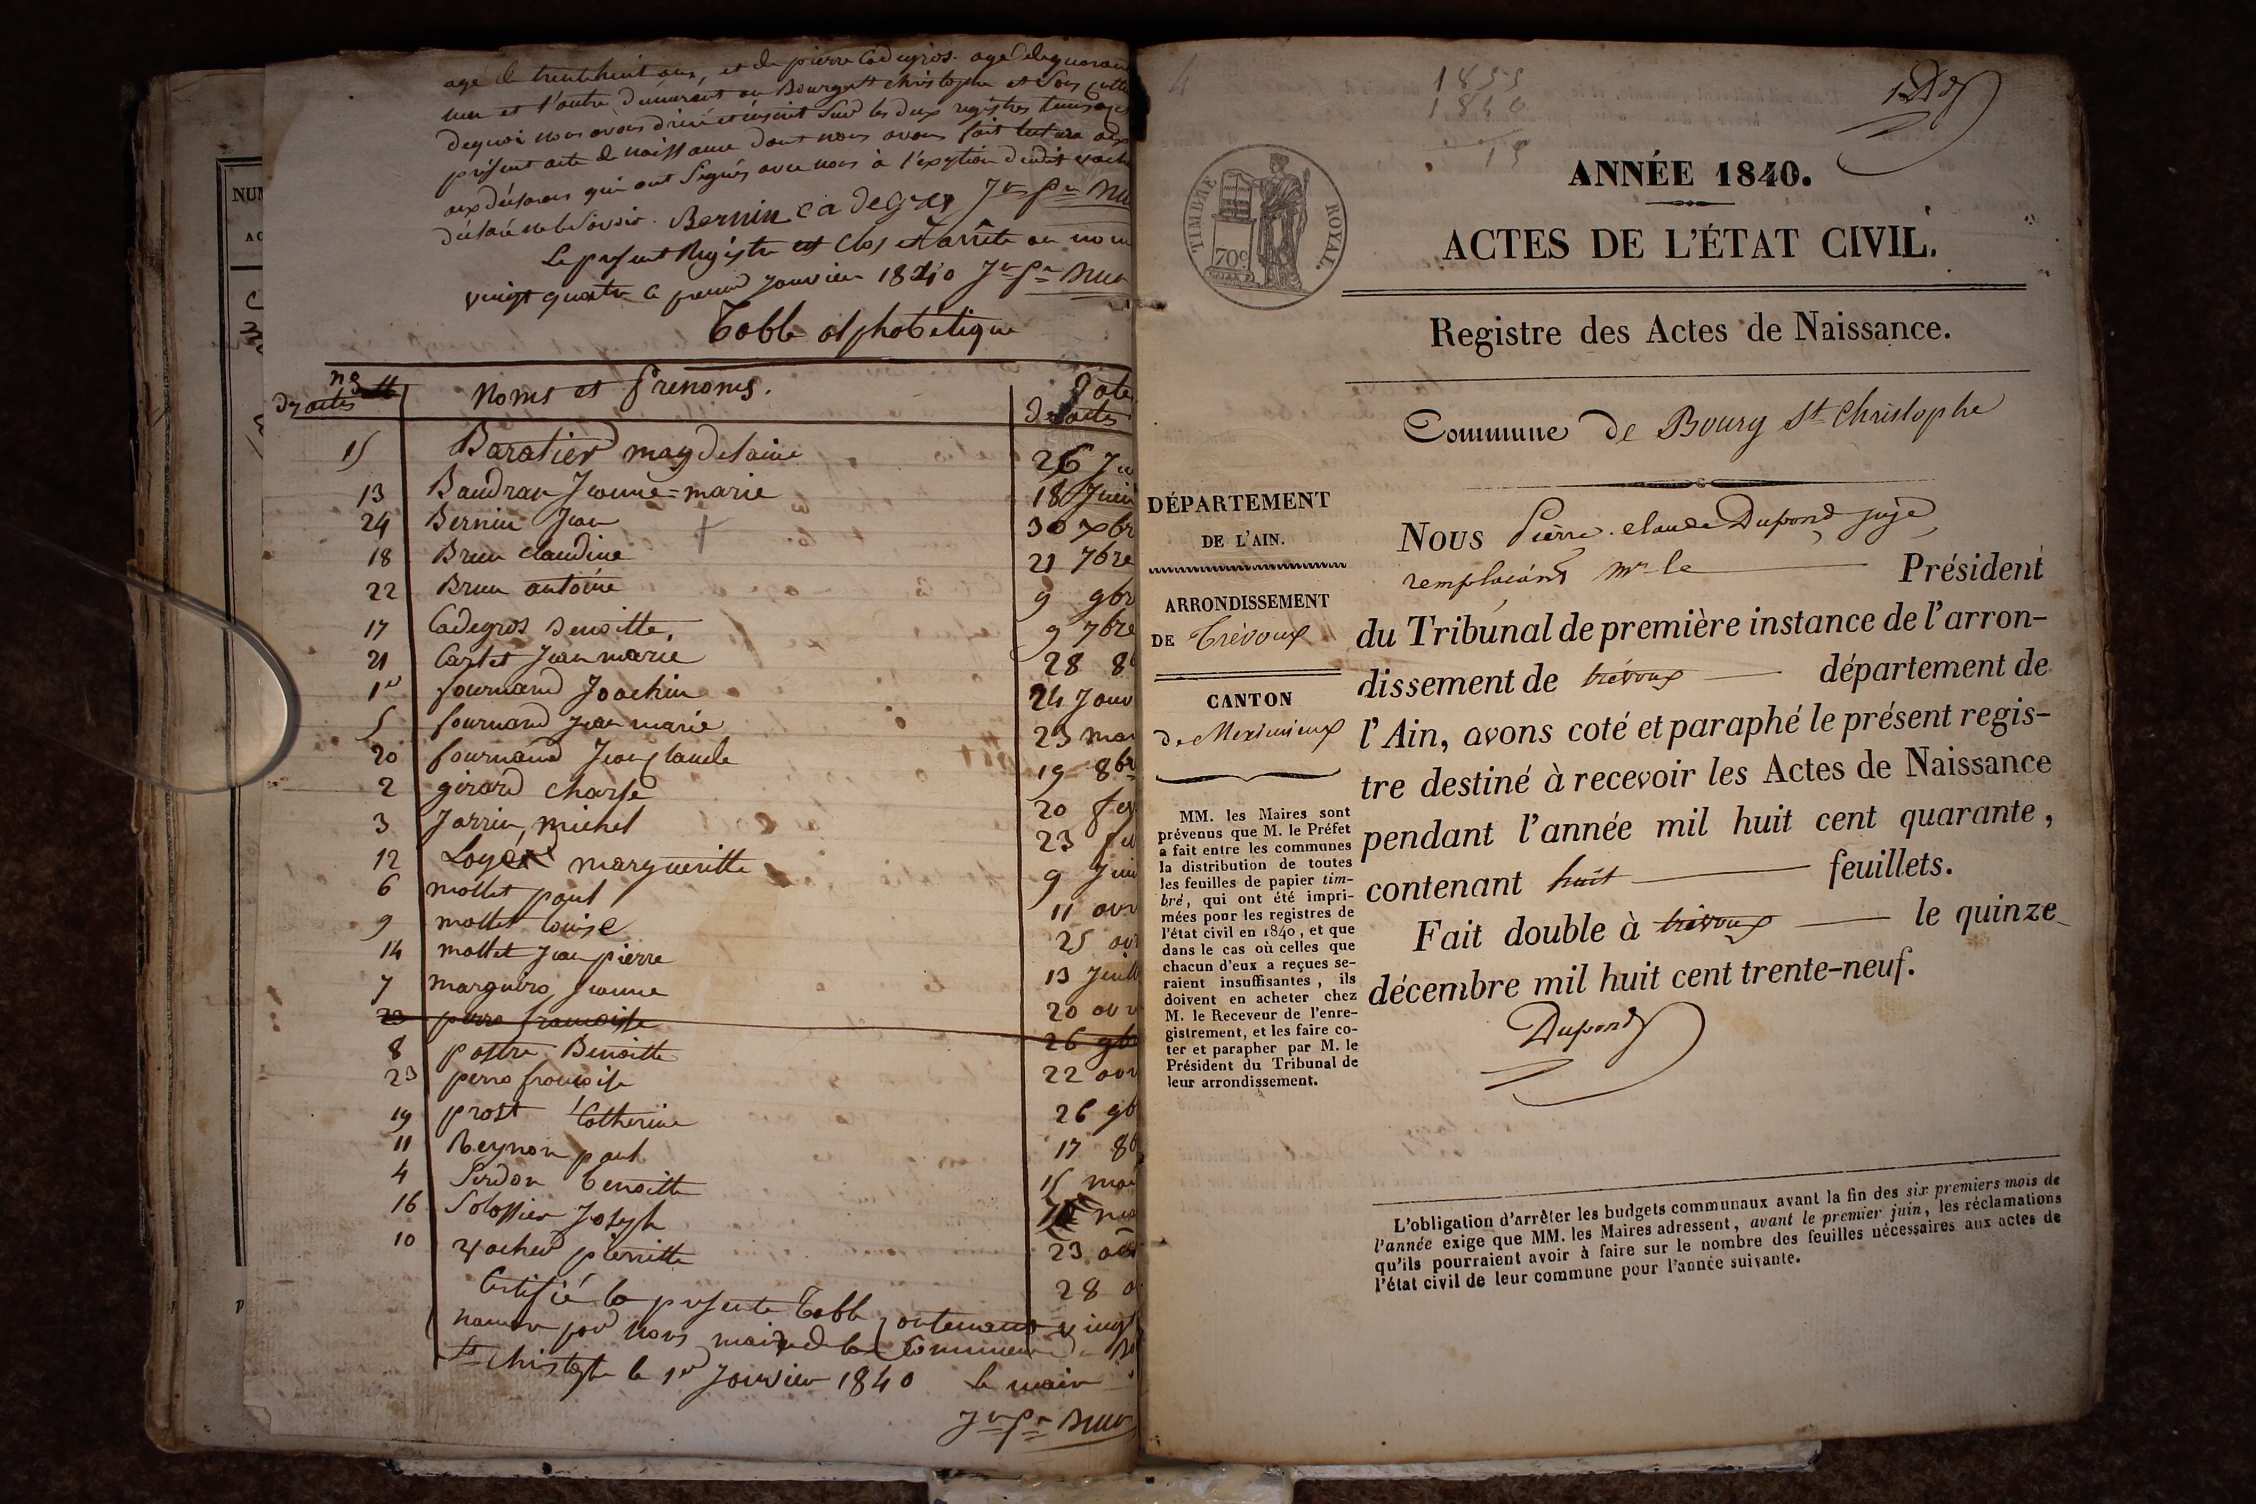 agé de trentehuit ans, et de pierre Cadegros. agé de quaran
un et l'autre demeurant au Bourg St christophe et Sous Cette
dequoi nous avons dréssé et inscrit Sur les deux registres timbrés
présent acte de naissance dont nous avons fait lecture aux
aux déclarans qui ont Signés avec nous à l'exeption dudit vacher
déclaré ne le Savoir. Bernin Cadegros Jn Pre Brun
Le présent Registre est Clos et arrêté au nom
vingt quatre le premier Janvier 1840 Jn Pre Brun
Table alphabétique
nos
des actes
Noms et Prenoms.
Date
des actes
15 Baratier magdelaine 26 Ju
13 Baudran Jeanne=marie 18 Juin
24 Bernin Jean 30 xbr
18 Brun claudine 21 7bre
22 Brun antoine 9 9br
17 Cadegros Benoitte, 9 7bre
21 Cartet Jean marie 28 8b
1er fournand Joachin 24 Janv
5 fournand Jean marie 23 mar
20 fournand Jean claude 19 8br
2 girard Charle 20 fev
3 Jarrin, michel 23 fev
12 Loyer margueritte 9 Juin
6 mollet paul 11 avr
9 mollet louise 25 avr
14 mollet Jean pierre 13 Juill
7 marguiro Jeanne 20 avr
23 perro francoise 26 9b
8 pattre Benoitte 22 avr
23 perro francoise
19 prost Catherine 26 9b
11 Reynon paul 17 8b
4 Serdon Benoitte 15 mai
16 Solassier Joseph mar
10 Vacher pierritte 23 aou
28 a
Certifié la présente Table Contenant vingt
par Nous maire de la Commune de Bo
St christophe le 1er Janvier 1840 le maire
Jn Pre Brun
4
1855
1840
15
1 Dd
TIMBRE ROYAL.
70c
ANNÉE 1840.
ACTES DE L'ÉTAT CIVIL.
Registre des Actes de Naissance.
Commune de Bourg St Christophe
DÉPARTEMENT
DE L'AIN.
ARRONDISSEMENT
DE Trévoux
CANTON
de Meximieux
MM. les Maires sont
prévenus que M. le Préfet
a fait entre les communes
la distribution de toutes
les feuilles de papier tim-
bré, qui ont été impri-
mées pour les registres de
l'état civil en 1840, et que
dans le cas où celles que
chacun d'eux a reçues se-
raient insuffisantes, ils
doivent en acheter chez
M. le Receveur de l'enre-
gistrement, et les faire co-
ter et parapher par M. le
Président du Tribunal de
leur arrondissement.
NOUS Pierre. claude Dupond juge
remplaçant Mr le Président
du Tribunal de première instance de l'arron-
dissement de trévoux département de
l'Ain, avons coté et paraphé le présent regis-
tre destiné à recevoir les Actes de Naissance
pendant l'année mil huit cent quarante,
contenant huit feuillets.
Fait double à trévoux le quinze
décembre mil huit cent trente-neuf.
Dupond
L'obligation d'arrêter les budgets communaux avant la fin des six premiers mois de
l'année exige que MM. les Maires adressent, avant le premier juin, les réclamations
qu'ils pourraient avoir à faire sur le nombre des feuilles nécessaires aux actes de
l'état civil de leur commune pour l'année suivante.
NUM
AC